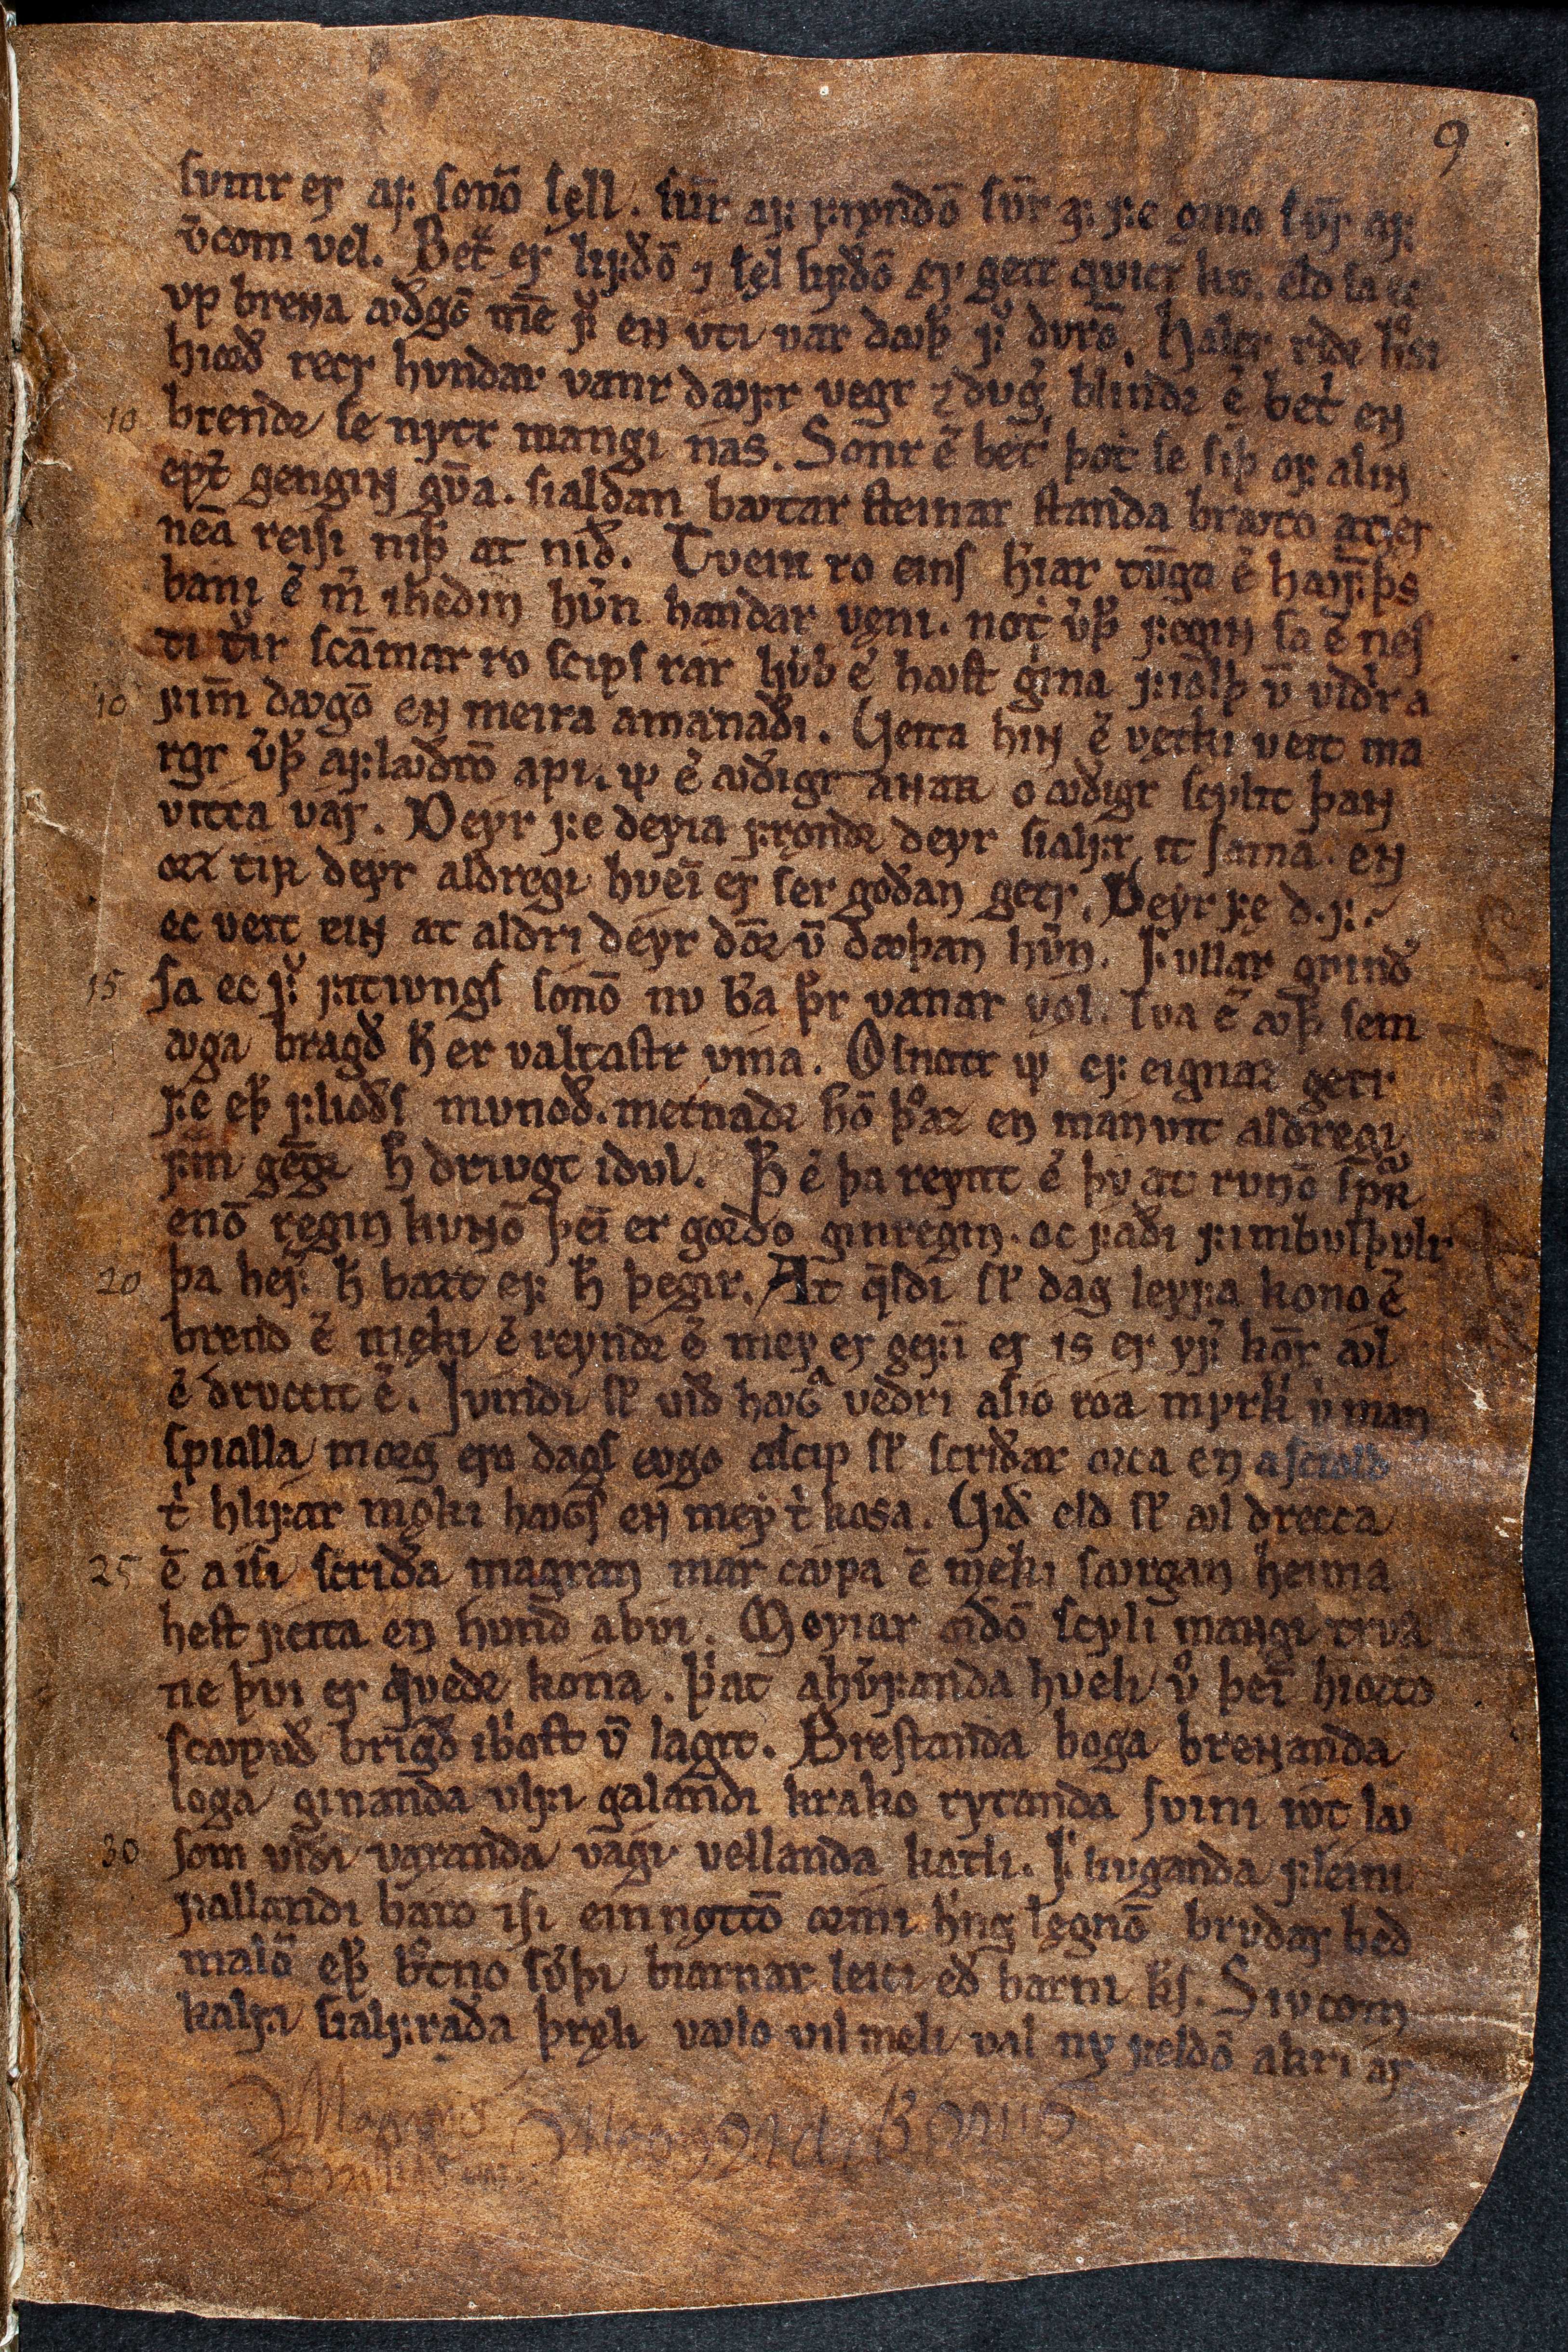 9
sumr er af sonō sęll. sūr af frǫndō sūr af fe ǿrno sūr af
v̄com vel. Betͬa er lifðō ⁊ sęl lifðō ey getr qvicr kv. eld sa ec
vp breɴa ꜹðgō m̄e fͥ eɴ vti var dꜹþͬ fͥ dvrō. Haltr riðr hͦsi
hiorð recr hundar vanr dꜹfr vegr ⁊ dvgͥ blindr ē betͬi eɴ
10 brendr se nytr mangi nás. Sonr ē betͬi þot se siþ of aliɴ
eptͥ gengiɴ gv̄a. sialdan bꜹtar steinar standa brꜹto ner
nēa reisi niþͬ at nið. Tveir ro eins hͥiar tūga ē hꜹfþs
bani ē m̄ iheðin hv̄n handar vęni. not vͬþͬ fegiɴ sa ē nes
ti trͮir scāmar ro scips rár hvͬb ē hꜹst gͥma fiolþ v̄ viðrͥa
10 fim̄ dꜹgō eɴ meira amanaði. Veita hiɴ ē vetki veit ma
rgr vͬþͬ aflꜹðrō api. ᛘ ē ꜹðigr aɴaʀ o ꜹðigr scylit þaɴ
vitca vár. Deyr fe deyia frǫndr deyr sialfr it sama. eɴ
orz tiʀ deyr aldregi hveī er ser goðan getr. Deyr fę d. f.
ec veit eiɴ at aldri deyr dōr v̄ dꜹþan hvn̄. Fullar grindr
15 sa ec fͥ fitiungs sonō nv bͬa þͬr vánar vǫl. sva ē ꜹþͬ sem
ꜹga bragð hͣ er valtastr vina. Osnotr ᛘ ef eignaz getr
fe eþͬ flioðs mvnoð. metnaðr hō þͦaz en manvit aldregi
fͣm gēgr hͣ driugt idul. Þͭ ē þa reynt ē þv at rvnō spͥʀ
enō reginkuɴō þeī er gorðo ginregin. oc faði fimbulþulr
20 þa hefͥ hͣ bazt ef hͣ þegir. At qͤldi scͣl dag leyfa kono ē
brend ē męki ē reyndr ē mey er gefī er is er yfͥ kōr ꜹl
ē drvccit ē. Ivindi scͣl við hꜹgͣ veðri asio roa myrkͥ vͥ man
spialla morg ero dags ꜹgo ascip scͣl scriðar orca en asciold
tͥ hlifar męki hꜹgs eɴ mey tͥ kosa. Við eld scͣl ꜹl drecca
25 ē aisi scriða magran mar cꜹpa ē męki sꜹrgan heima
hest feita en hund abvi. Meyiar orðō scyli mangi trva
ne þvi er qveðr kona. þͥat ahvͬfanda hveli vͦ þeī hiorto
scꜹpvð brigð ibͥost v̄ lagit. Brestanda boga breɴanda
loga ginanda ulfi galandi krako rytanda svini rot lꜹ
30 som viði vaxanda vági vellanda katli. Fliuganda fleini
fallandi baro isi einnǫttō ormi hͥng lęgnō brvðar bed
malō eþͬ bͬotno svͬþi biarnar leiki eð barni kͦs. Siucom
kalfi sialfraða þręli vꜹlo vilmeli val ny feldō akri ar